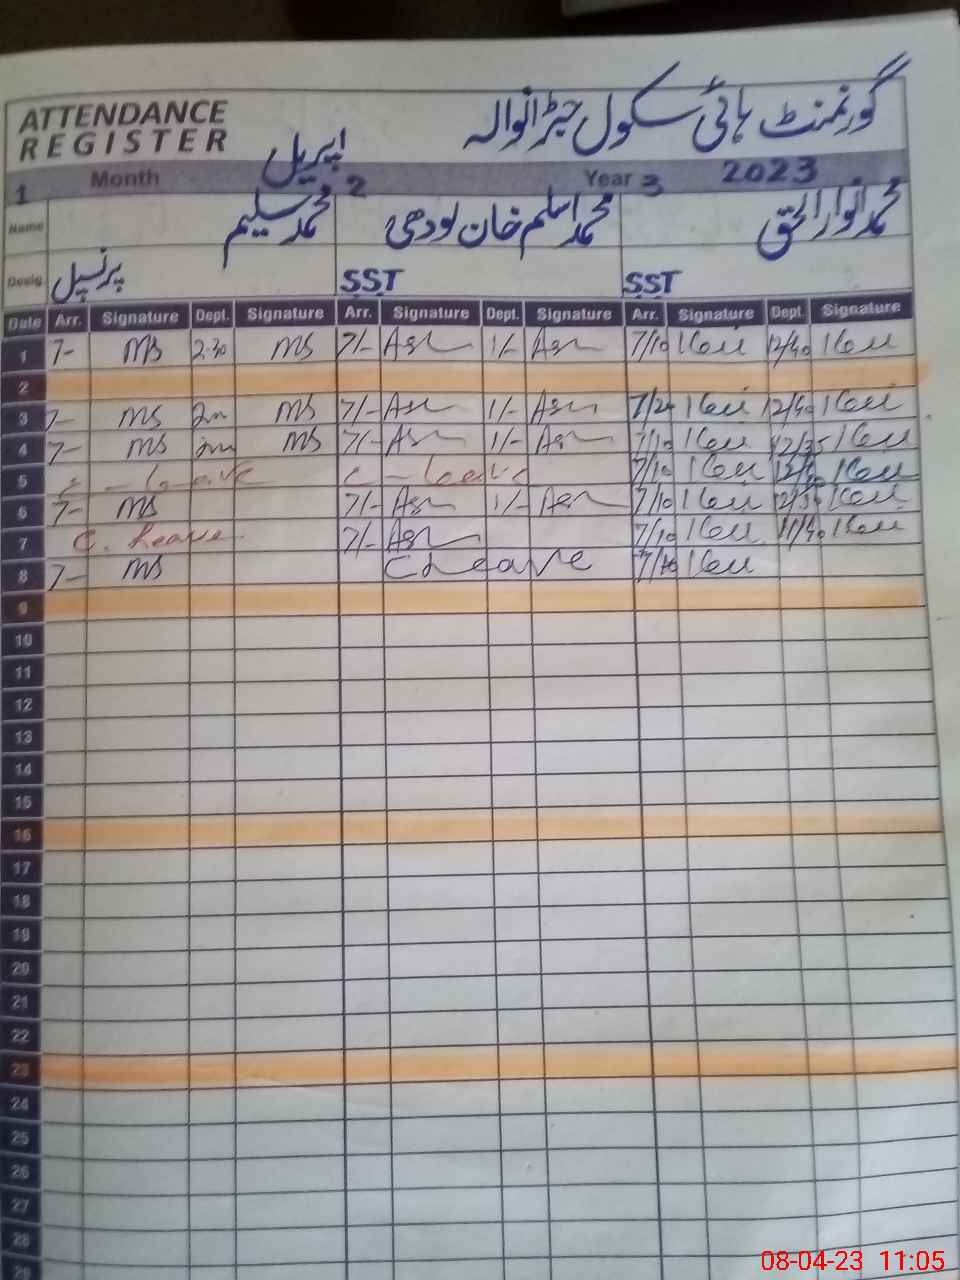 ATTENDANCE REGISTER
گورنمنٹ ہائی سکول جبڑانوالہ
Month اپریل Year 2023
1 2 3
Name محمد سلیم محمد اسلم خان لودھی محمد انوار الحق
Desig پرنسپل SST SST
Date Arr. Signature Dept. Signature Arr. Signature Dept. Signature Arr. Signature Dept. Signature
1 7- MS 2.30 MS 7/- 1/- 7/10 12/40
2
3 7- MS MS 7/- 1/- 12/40
4 7- MS MS 7/- 1/- 7/10 12/35
5 C - Leave C - Leave 7/10
6 7- MS 7/- 1/- 7/10
7 C. Leave 7/- 7/10 11/40
8 7- MS C Leave
9
10
11
12
13
14
15
16
17
18
19
20
21
22
23
24
25
26
27
28
29
08-04-23 11:05